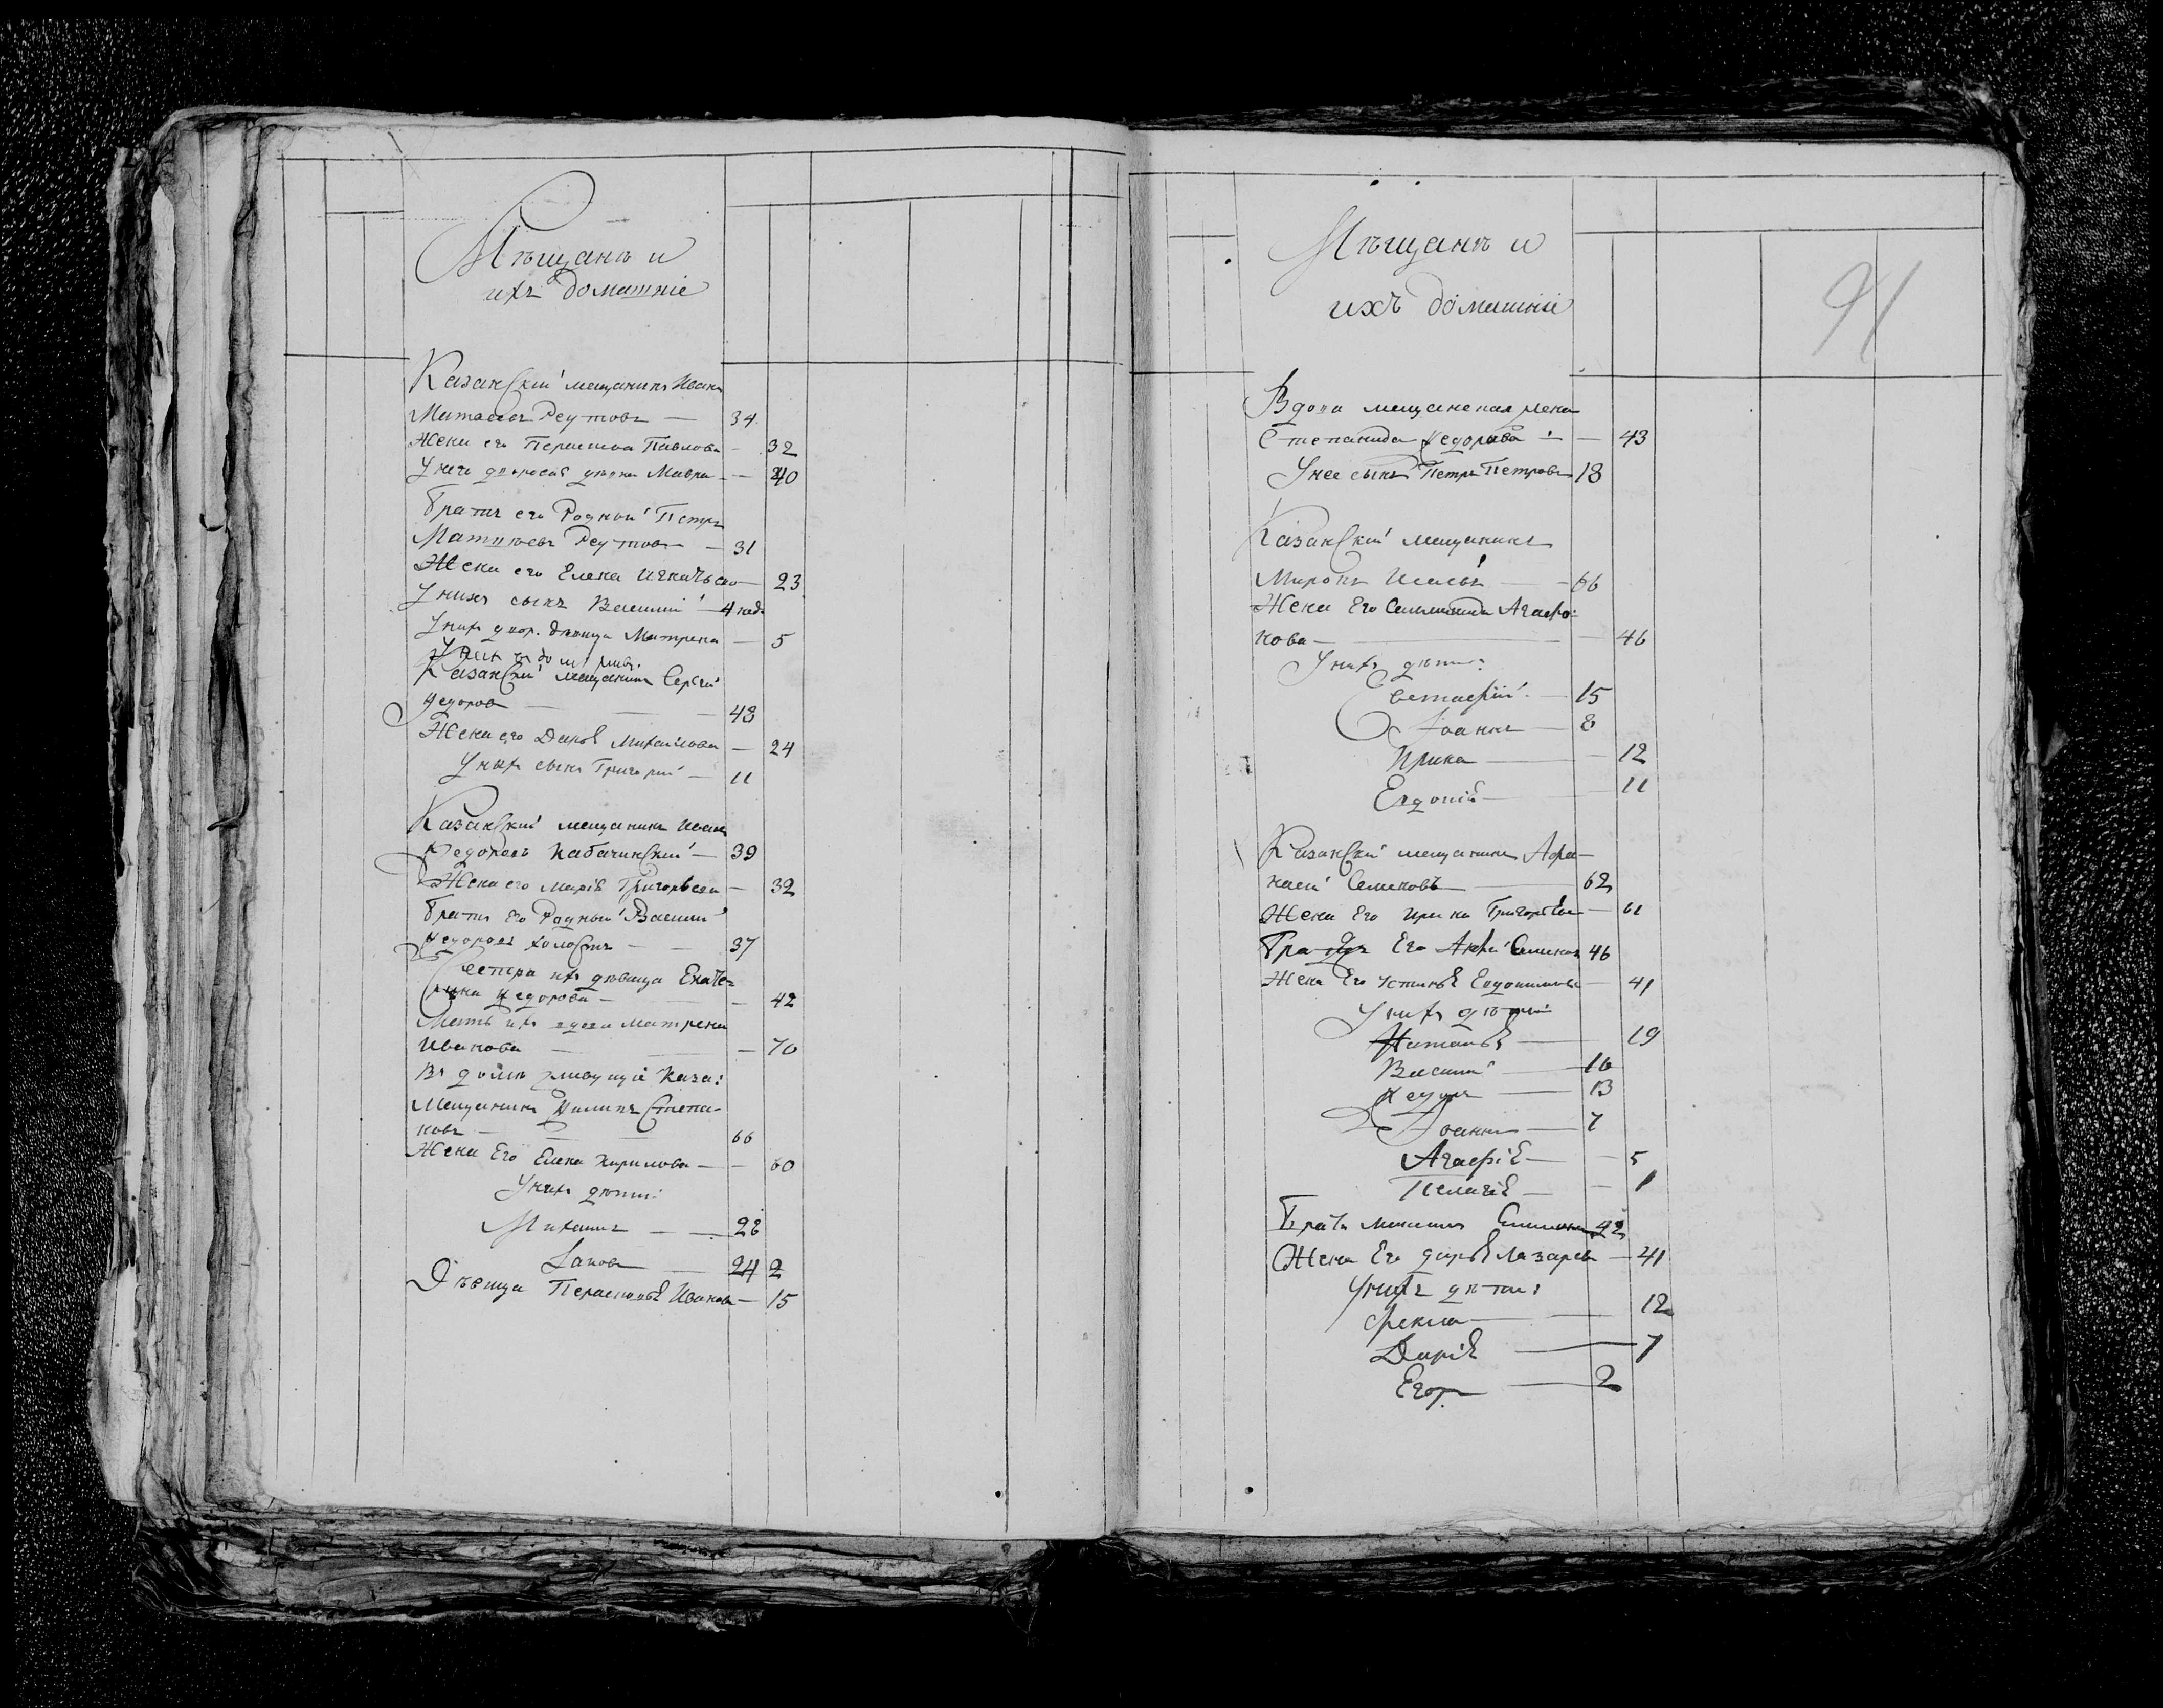 Мѣщанъ и
ихъ домашніе
Казанскій мещанинъ Иванъ
Матвеевъ Реутовъ — 34
Жена его Параскева Павлова — 32
У него дворовая девка Мавра — 40
Братъ его Родный Петръ
Матвѣевъ Реутовъ — 31
Жена его Елена Игнатьева — 23
У нихъ сынъ Василий — 4 нед.
У нихъ двор. дѣвица Матрена — 5
Казанскій мещанинъ Сергѣй
Федоровъ — 43
Жена его Дарья Михайлова — 24
У нихъ сынъ Григорий — 11
Казанский мещанинъ Иванъ
Федоровъ Кабачинский — 39
Жена его Марія Григорьева — 32
Братъ Его Родный Василий
Федоровъ холостъ — 37
Сестра ихъ дѣвица Екате-
рина Федорова — 42
Мать ихъ вдова Матрена
Иванова — 70
Въ домѣ живущие Каза:
Мещанинъ Филипъ Степа-
новъ — 66
Жена Его Елена Кирилова — 60
У нихъ дѣти:
Михаилъ — 28
Іаковъ — 24 2
Дѣвица Парасковья Иванова — 15
Мѣщанъ и
ихъ домашніе
91
Вдова мещанская жена
Степанида Федорова — 43
У нее сынъ Петръ Петровъ 18
Казанский мещанинъ
Миронъ Исаевъ — 66
Жена Его Агафо:
нова — 46
У нихъ дѣти:
Евстафий — 15
Іоаннъ — 8
Ирина — 12
Евдокія — 11
Казанский мещанинъ Афа-
насий Семеновъ — 62
Жена Его Ирина Григорьева — 61
Братъ Его Семеновъ 46
Жена Его Устинья Евдокимова — 41
У нихъ дѣти:
Наталья — 19
Василий — 16
Федоръ — 13
Іоаннъ — 7
Агафія — 5
Пелагія — 1
Братъ Семеновъ 42
Жена Его Дарья Лазарева — 41
У нихъ дѣти:
Фекла — 12
Дарія — 7
Егоръ — 2